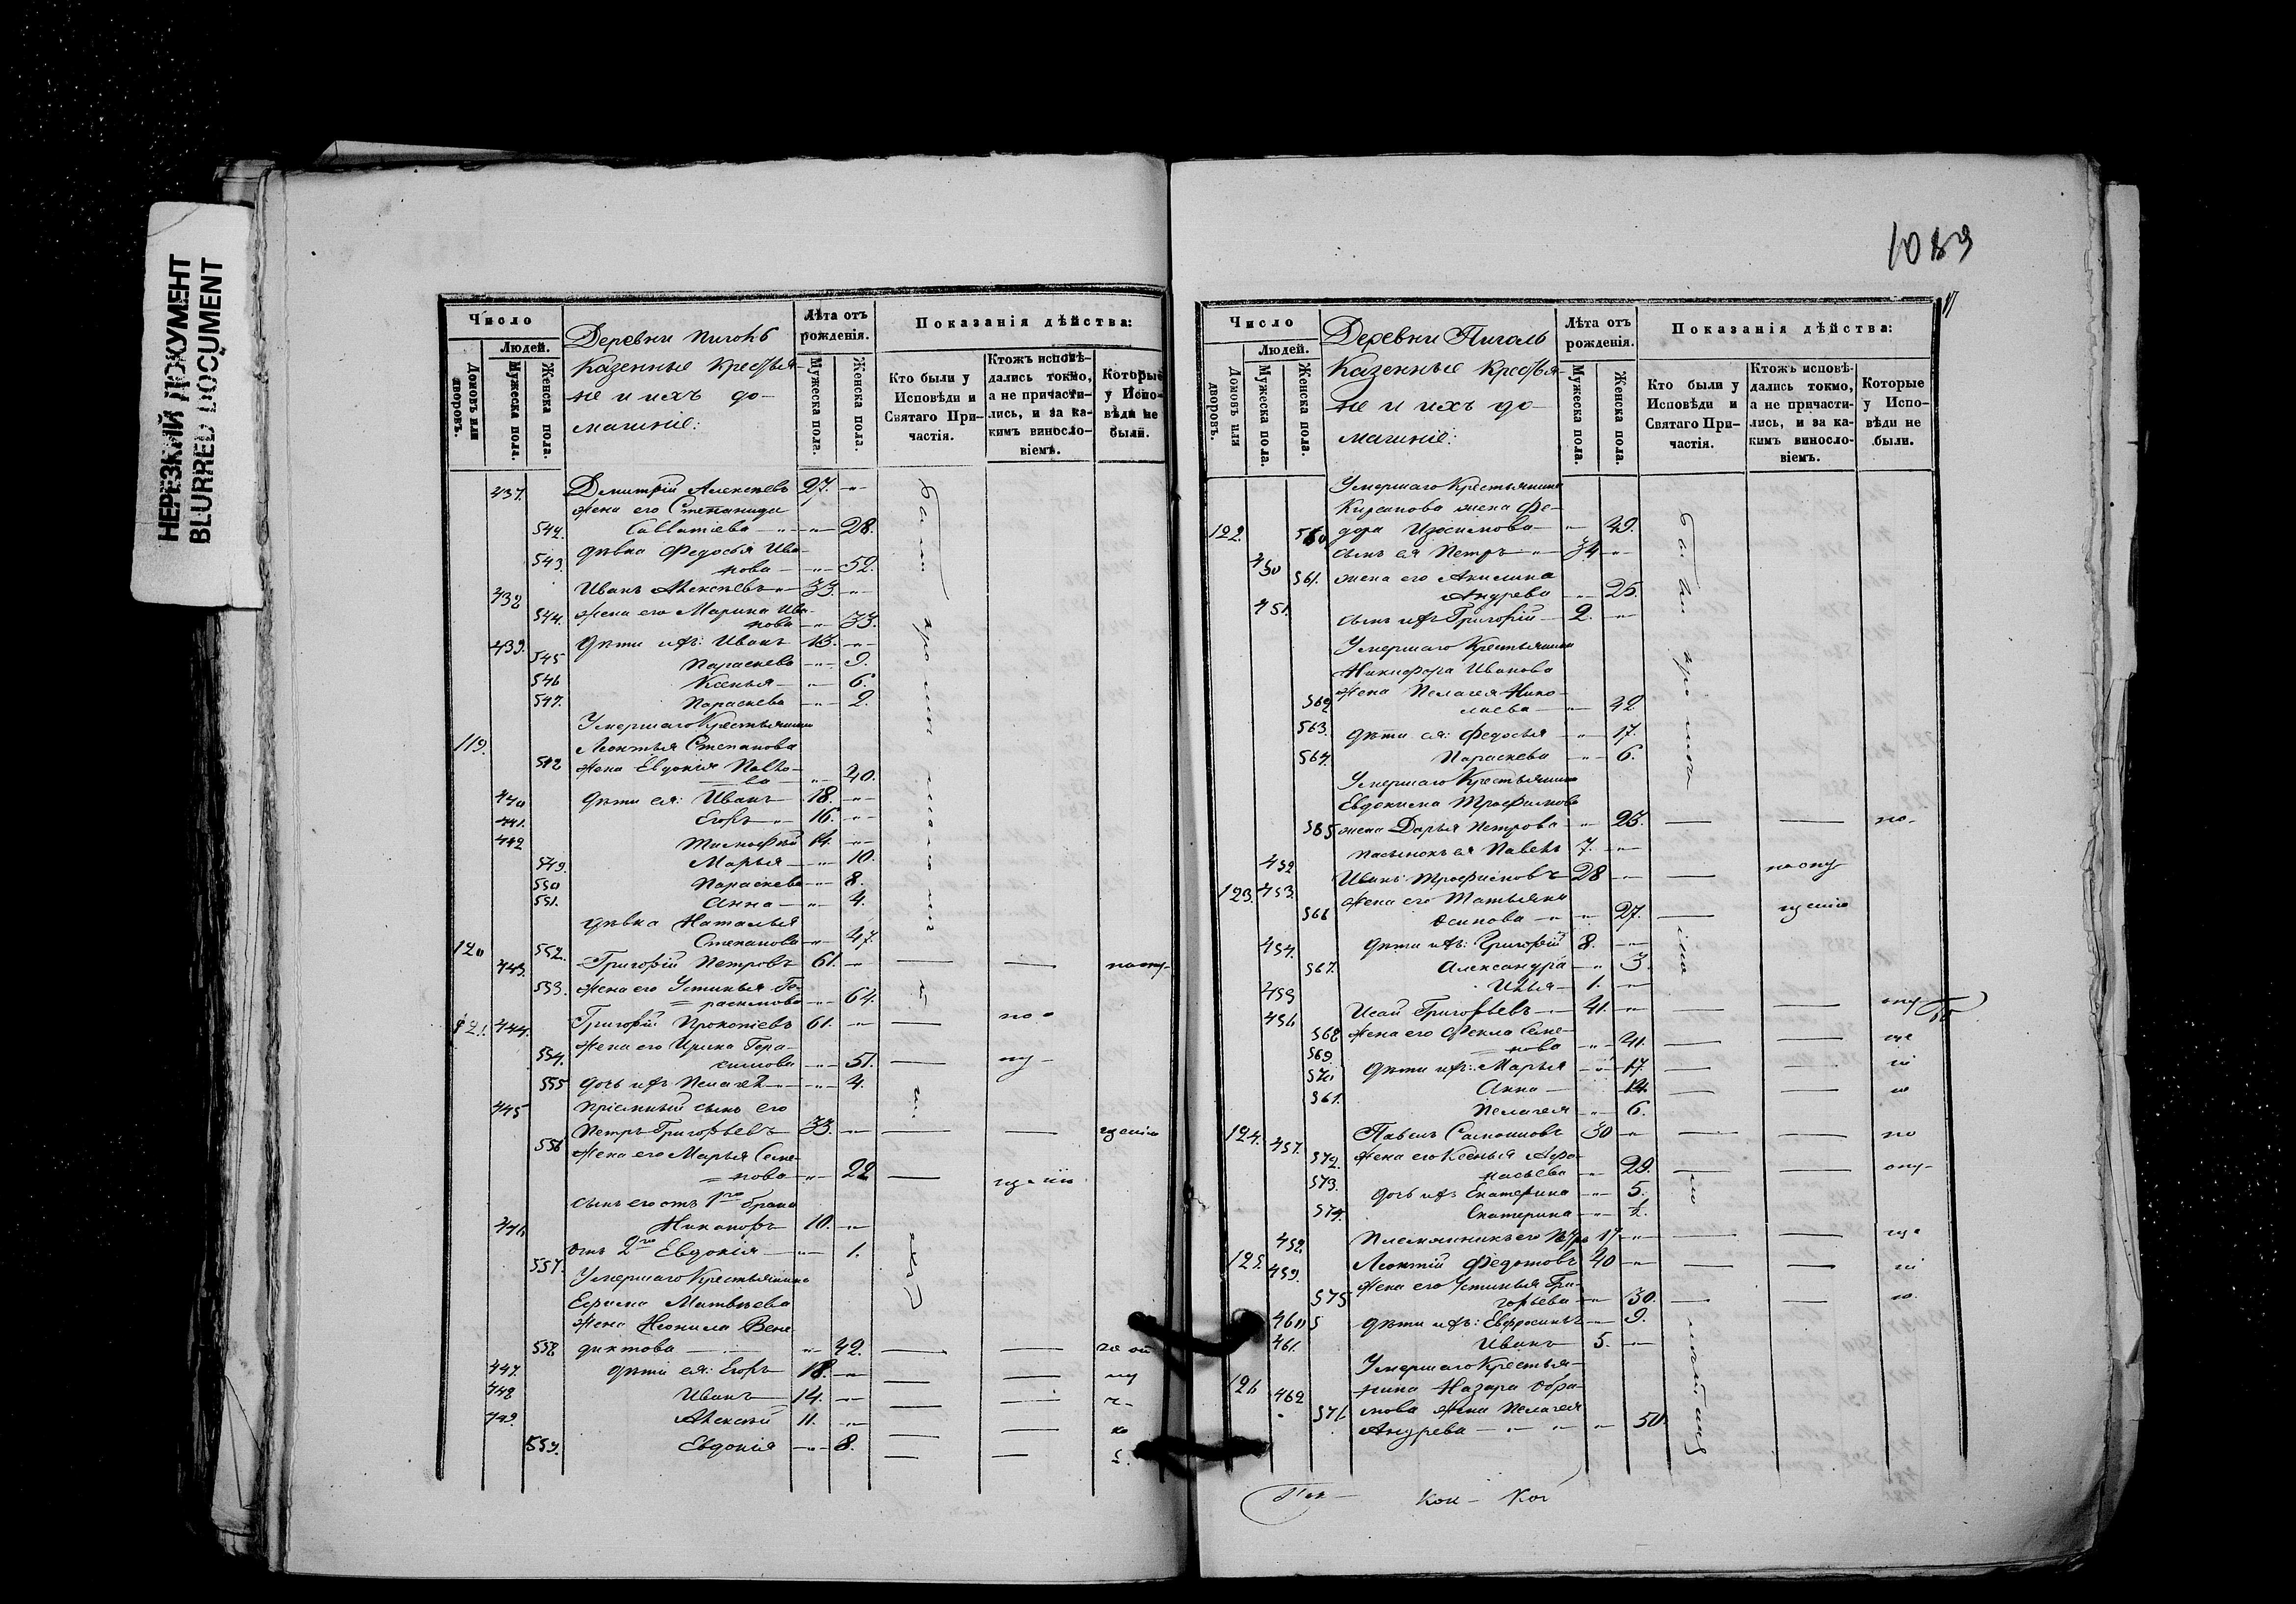 НЕРЕЗКИЙ ДОКУМЕНТ
BLURRED DOCUMENT
Число
Людей.
Домовъ или дворовъ.
Мужеска пола.
Женска пола.
Деревни Пиголь
Казенные Крестья-
не и ихъ до-
машніе:
Лѣта отъ рожденія.
Мужеска пола.
Женска пола.
Показанія дѣйства:
Кто были у Исповѣди и Святаго При-частія.
Ктожъ исповѣ-дались токмо, а не причасти-лись, и за ка-кимъ виносло-віемъ.
Которые у Испо-вѣди не были.
437. Дмитрій Алексѣевъ 27.
жена его Степанида
542. Савватіева 28.
543. дѣвка Федосья Ива-
нова 52.
438 Иванъ Алексѣевъ 33.
544. Жена его Марина Ива-
нова 33.
439. Дѣти ихъ: Иванъ 13.
545 Параскева 9.
546 Ксенья 6.
547. Параскева 2.
Умершаго Крестьянина
119. Леонтья Степанова
548 жена Евдокія Павло-
ва 40.
440 Дѣти ея: Иванъ 18.
441. Егоръ 16.
442 Тимофей 14.
549. Марья 10.
550 Параскева 8.
551. Анна 4.
дѣвка Наталья
552. Степанова 47.
120 443. Григорій Петровъ 61.
553. Жена его Устинья Ге-
расимова 64.
121. 444. Григорій Прокопіевъ 61.
Жена его Ирина Гера-
554. симова 51.
555 дочь ихъ Пелагея 4.
445 Пріемный сынъ его
Петръ Григорьевъ 33.
556 Жена его Марья Семе-
нова 22
сынъ его отъ 1го брака
446 Никаноръ 10.
557. отъ 2го Евдокія 1.
Умершаго Крестьянина
Ефима Матвѣева
жена Неонила Вене-
558 диктова 42.
447. дѣти ея: Егоръ 18.
448 Иванъ 14.
449. Алексѣй 11.
559. Евдокія 8.
1089
Число
Людей.
Домовъ или дворовъ.
Мужеска пола.
Женска пола.
Деревни Пиголь
Казенные Крестья-
не и ихъ до-
машніе:
Лѣта отъ рожденія.
Мужеска пола.
Женска пола.
Показанія дѣйства:
Кто были у Исповѣди и Святаго При-частія.
Ктожъ исповѣ-дались токмо, а не причасти-лись, и за ка-кимъ виносло-віемъ.
Которые у Испо-вѣди не были.
Умершаго Крестьянина
Кирсанова жена Фе-
122. 560 дора Изосимова 49.
450 сынъ ея Петръ 34
561. жена его Акилина
Андрева 25.
451. сынъ ихъ Григорій 2.
Умершаго Крестьянина
Никифора Иванова
жена Пелагея Нико-
562 лаева 42
563. дѣти ея: Федосья 17.
564. Параскева 6.
Умершаго Крестьянина
Евдокима Трофимова
565 жена Дарья Петрова 23.
452 пасынокъ ея Павелъ 7.
123. 453. Иванъ Трофимовъ 28
жена его Татьяна
566 Осипова 27.
454. дѣти ихъ: Григорій 8.
567. Александра 3.
455 Илья 1.
456 Исай Григорьевъ 41.
568 жена его Фекла Семе-
нова 41.
569. дѣти ихъ: Марья 17.
570 Анна 14.
561. Пелагея 6.
124. 457. Павелъ Самойловъ 30
572. жена его Ксенья Афа-
насьева 29.
573. дочь ихъ Екатерина 5.
574. Екатерина
458 Племянникъ его Петръ 17
125. 459. Леонтій Федотовъ 40
575 жена его Устинья Гри-
горьева 30.
460 дѣти ихъ: Евфросинья 9.
461. Иванъ 5.
Умершаго Крестья-
126 462 нина Назара
жена Пелагея
Андрева 50.